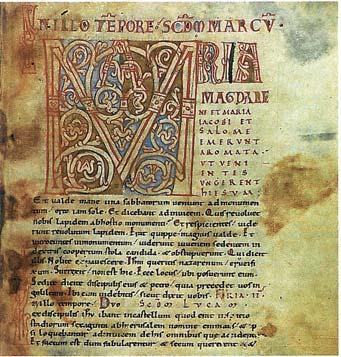 N ILLO TEPORE · SCDM MARCV ·
MARIA
MAGDALE
NE ET MARIA
IACOBI ET
SALOME
EMERVNT
AROMATA ·
VT VENI
ENTES
VNGERENT
IHESVM ·
Et valde mane una sabbatorum veniunt ad monumen
tum · orto iam sole · Et dicebant ad invicem · Quis revolvet
nobis lapidem ab hostio monumenti · Et respicientes · vide
runt revolutum lapidem · Erat quippe magnus valde · Et
introeuntes in monumentum · viderunt iuvenem sedentem in
dextris coopertum stola candida · & obstupuerunt · Qui dicit
illis · Nolite expavescere · Ihm queritis nazarenum · crucifi
xum · Surrexit · non est hic · Ecce locus ubi posuerunt eum ·
Sed ite dicite discipulis eius & petro · quia precedet vos in
galileam · Ibi eum videbitis · sicut dixit vobis · FERIA · II ·
In illo tempore · Duo SCDM LVCAM
ex discipulis ihu ibant in castellum quod erat in spatio
stadiorum sexaginta ab hierusalem nomine emmaus · & ip
si loquebantur ad invicem de his omnibus que acciderant ·
Et factum est dum fabularentur & secum quererent &